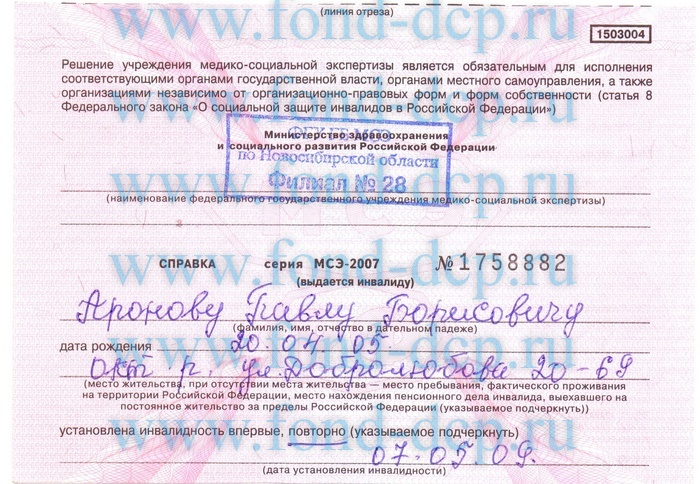 www.fond-dcp.ru
(линия отреза)
1503004
Решение учреждения медико-социальной экспертизы является обязательным для исполнения
соответствующими органами государственной власти, органами местного самоуправления, а также
организациями независимо от организационно-правовых форм и форм собственности (статья 8
Федерального закона «О социальной защите инвалидов в Российской Федерации»)
www.fond-dcp.ru
ФГУ ГБ МСЭ
Министерство здравоохранения
и социального развития Российской Федерации
по Новосибирской области
Филиал № 28
www.fond-dcp.ru
(наименование федерального государственного учреждения медико-социальной экспертизы)
СПРАВКА серия МСЭ-2007 №1758882
www.fond-dcp.ru
(выдается инвалиду)
Аронову Павлу Борисовичу
(фамилия, имя, отчество в дательном падеже)
дата рождения 20.04.05.
www.fond-dcp.ru
окт р. ул.Добролюбова 20-69
(место жительства, при отсутствии места жительства — место пребывания, фактического проживания
на территории Российской Федерации, место нахождения пенсионного дела инвалида, выехавшего на
постоянное жительство за пределы Российской Федерации (указываемое подчеркнуть))
установлена инвалидность впервые, повторно (указываемое подчеркнуть)
www.fond-dcp.ru
07.05.09.
(дата установления инвалидности)